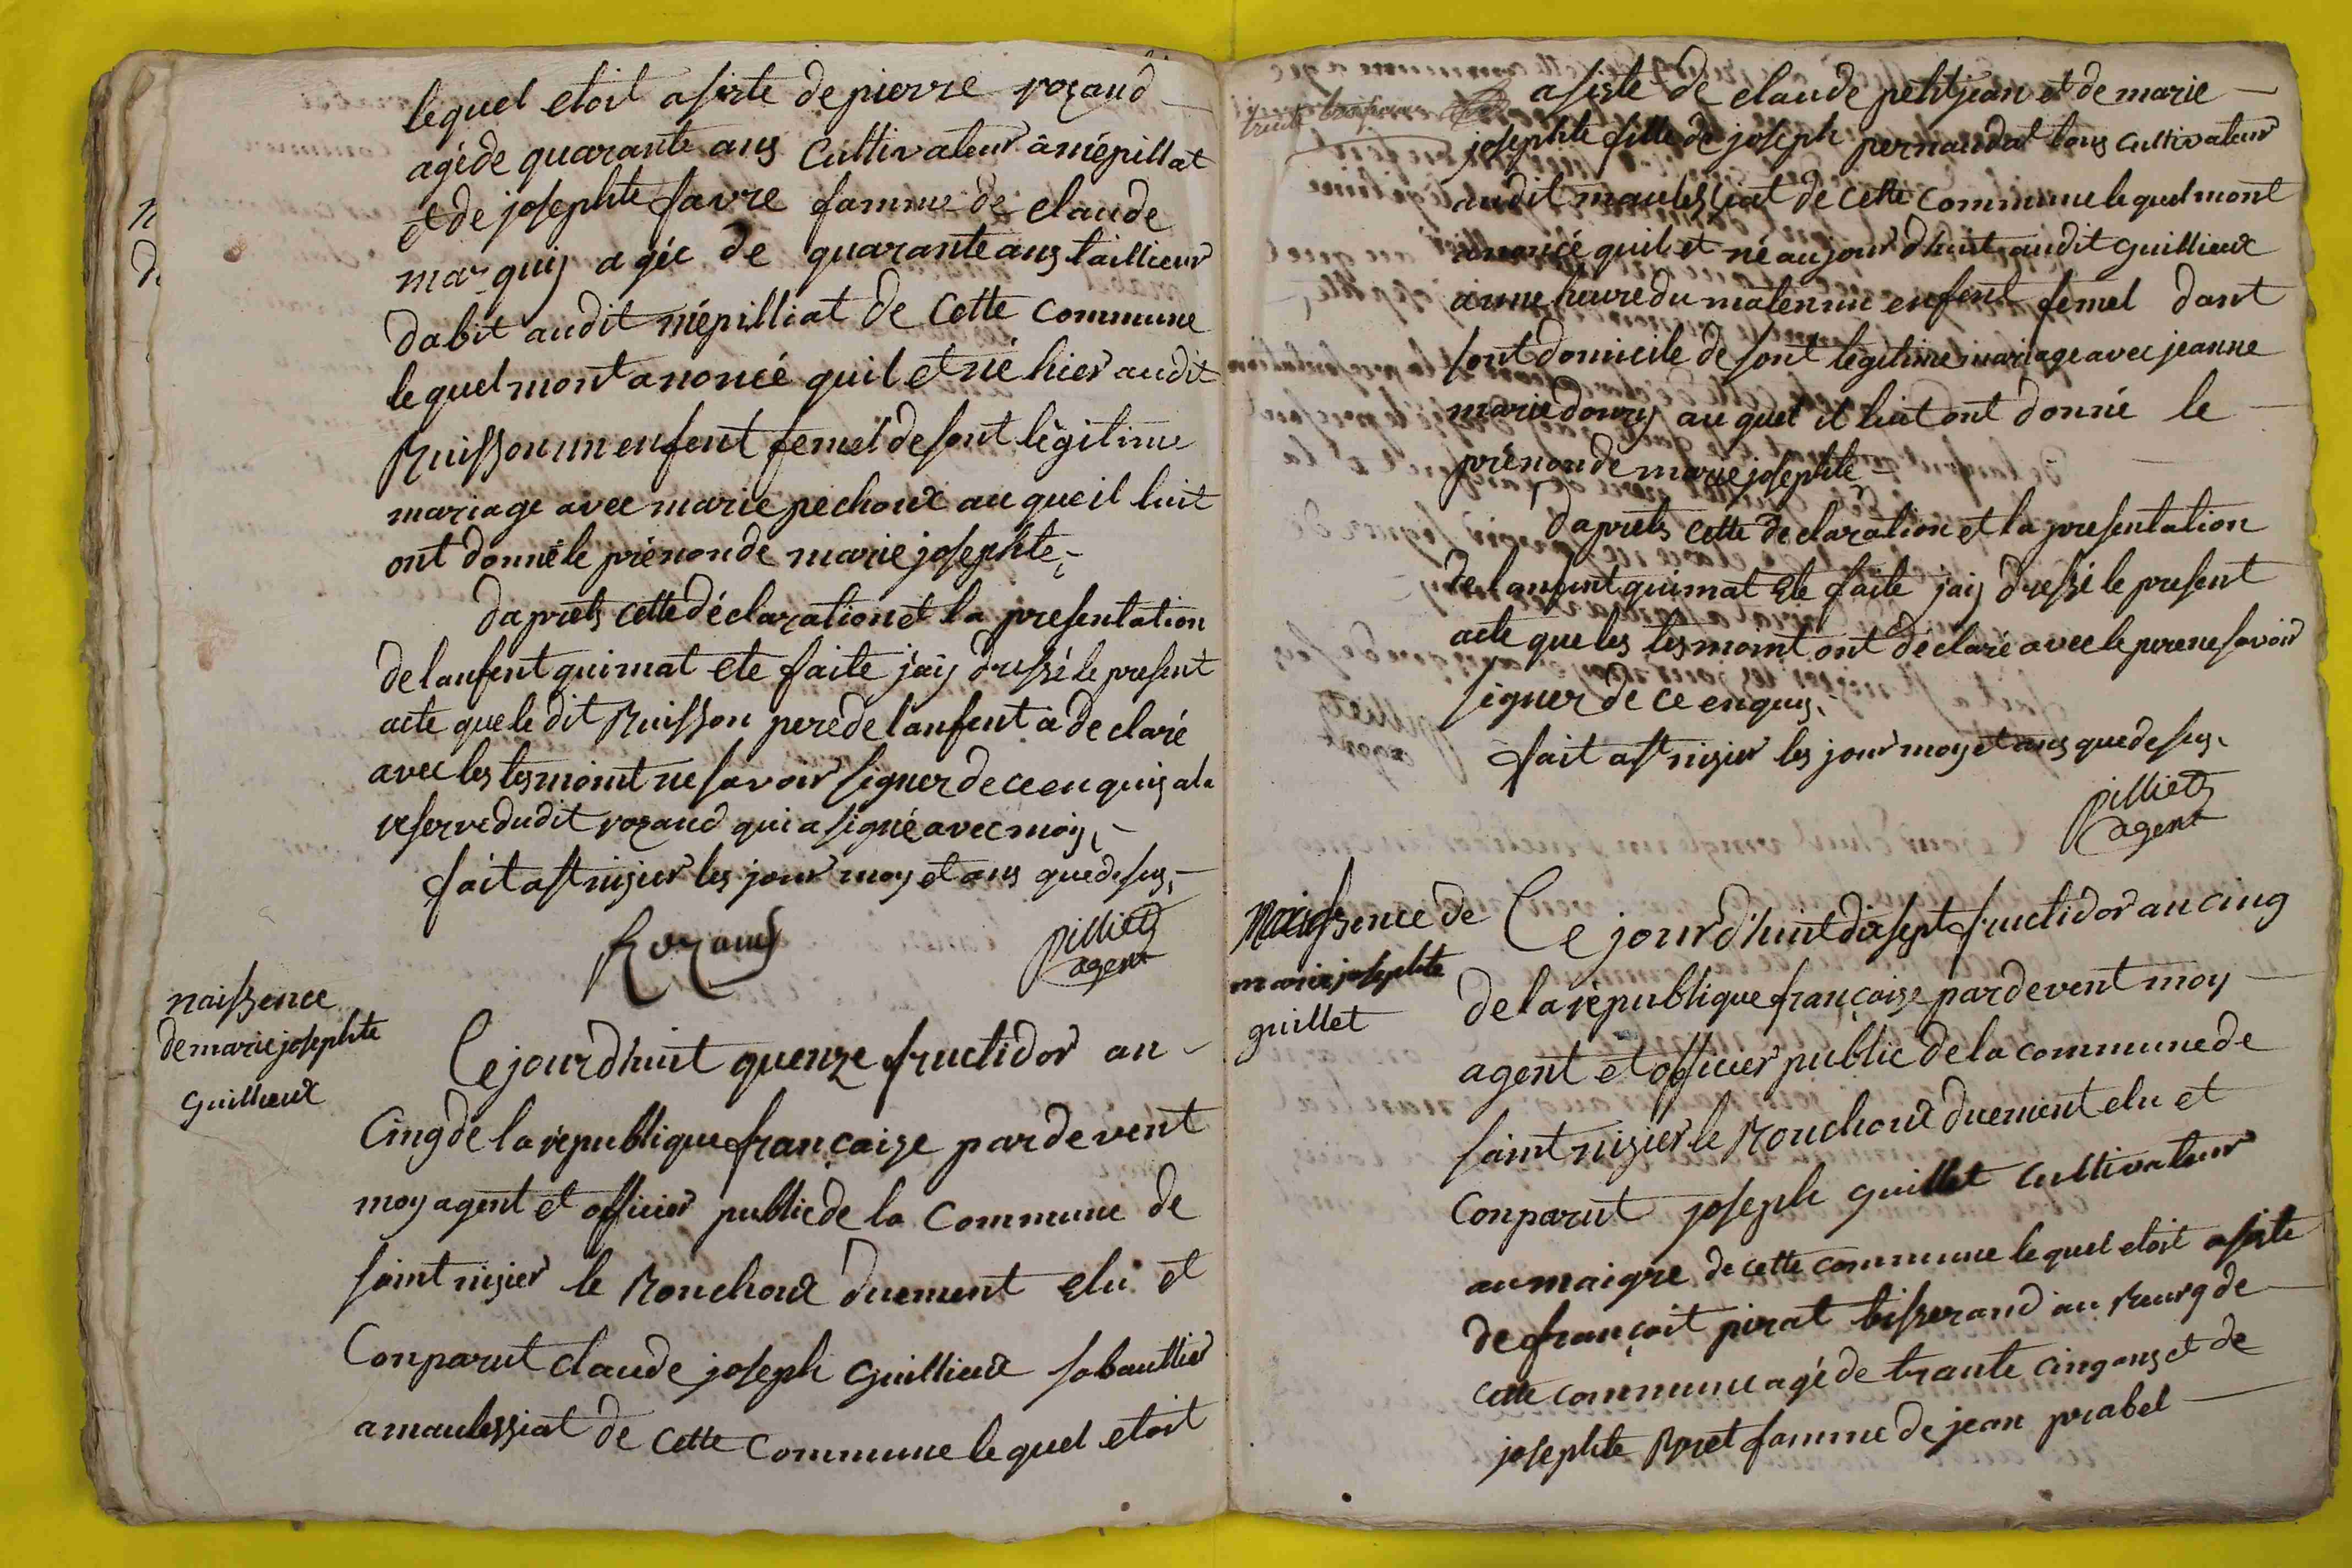 lequel etoit asiste de pierre rozand
agé de quarante ans Cultivateur â mépillat
et de josephte favre famme de claude
marquis agée de quarante ans taillieur
dabit audit mépilliat de Cette Commune
lequel mont anoncé quil et né hier audit
Buisson un enfent femel de sont légitime
mariage avec marie pechoux au queil luit
ont donné le prénon de marie josephte
daprets cette déclaration et la presentation
de lanfent qui mat ete faite jaij dressé le present
acte que le dit Buisson pere de lanfent a declaré
avec les tesmoint ne savoir signer de ce enquis a la
reserve dudit rozand qui a signé avec moij
fait a st nisier les jour moy et ans que desus
Rozand
pilliet
agent
naissence
de marie josephte
Guillieux
Ce jourdhuit quenze fructidor an
Cinq de la république francaize pardevent
moy agent et officier public de la Commune de
saint nisier le Bouchoux duement elu et
Conparut claude joseph Guillieux sabautlier
a maulessiat de Cette Commune lequel etoit
asiste de claude petitjean et de marie
josephte fille de joseph pernaudat tous cultivateur
audit maulessiat de Cette Commune lequel mont
anoncé quil et né aujourdhuit audit guillieux
a une heure du maten un enfent femel dant
sont domicile de sont légitime mariage avec jeanne
marie douvry au quel il luit ont donné le
prénon de marie josephte
Daprets cette declaration et la presentation
de lanfent qui mat ete faite jaij dressé le present
acte que les tesmoint ont déclaré avec le pere ne savoir
signer de ce enquis
fait a st nisier les jour moy et ans que desus
pilliet
agent
Naissence de
marie josephte
guillet
Ce jourd'huit disept fructidor an cinq
de la république francaize pardevent moy
agent et officier public de la commune de
saint nisier le Bouchoux duement elu et
Conparut joseph guillet cultivateur
au maigre de cette commune lequel etoit asiste
de françoit pirat tisserand au Bourg de
cette commune agé de trante cinq ans et de
josephte Buet famme de jean prabel